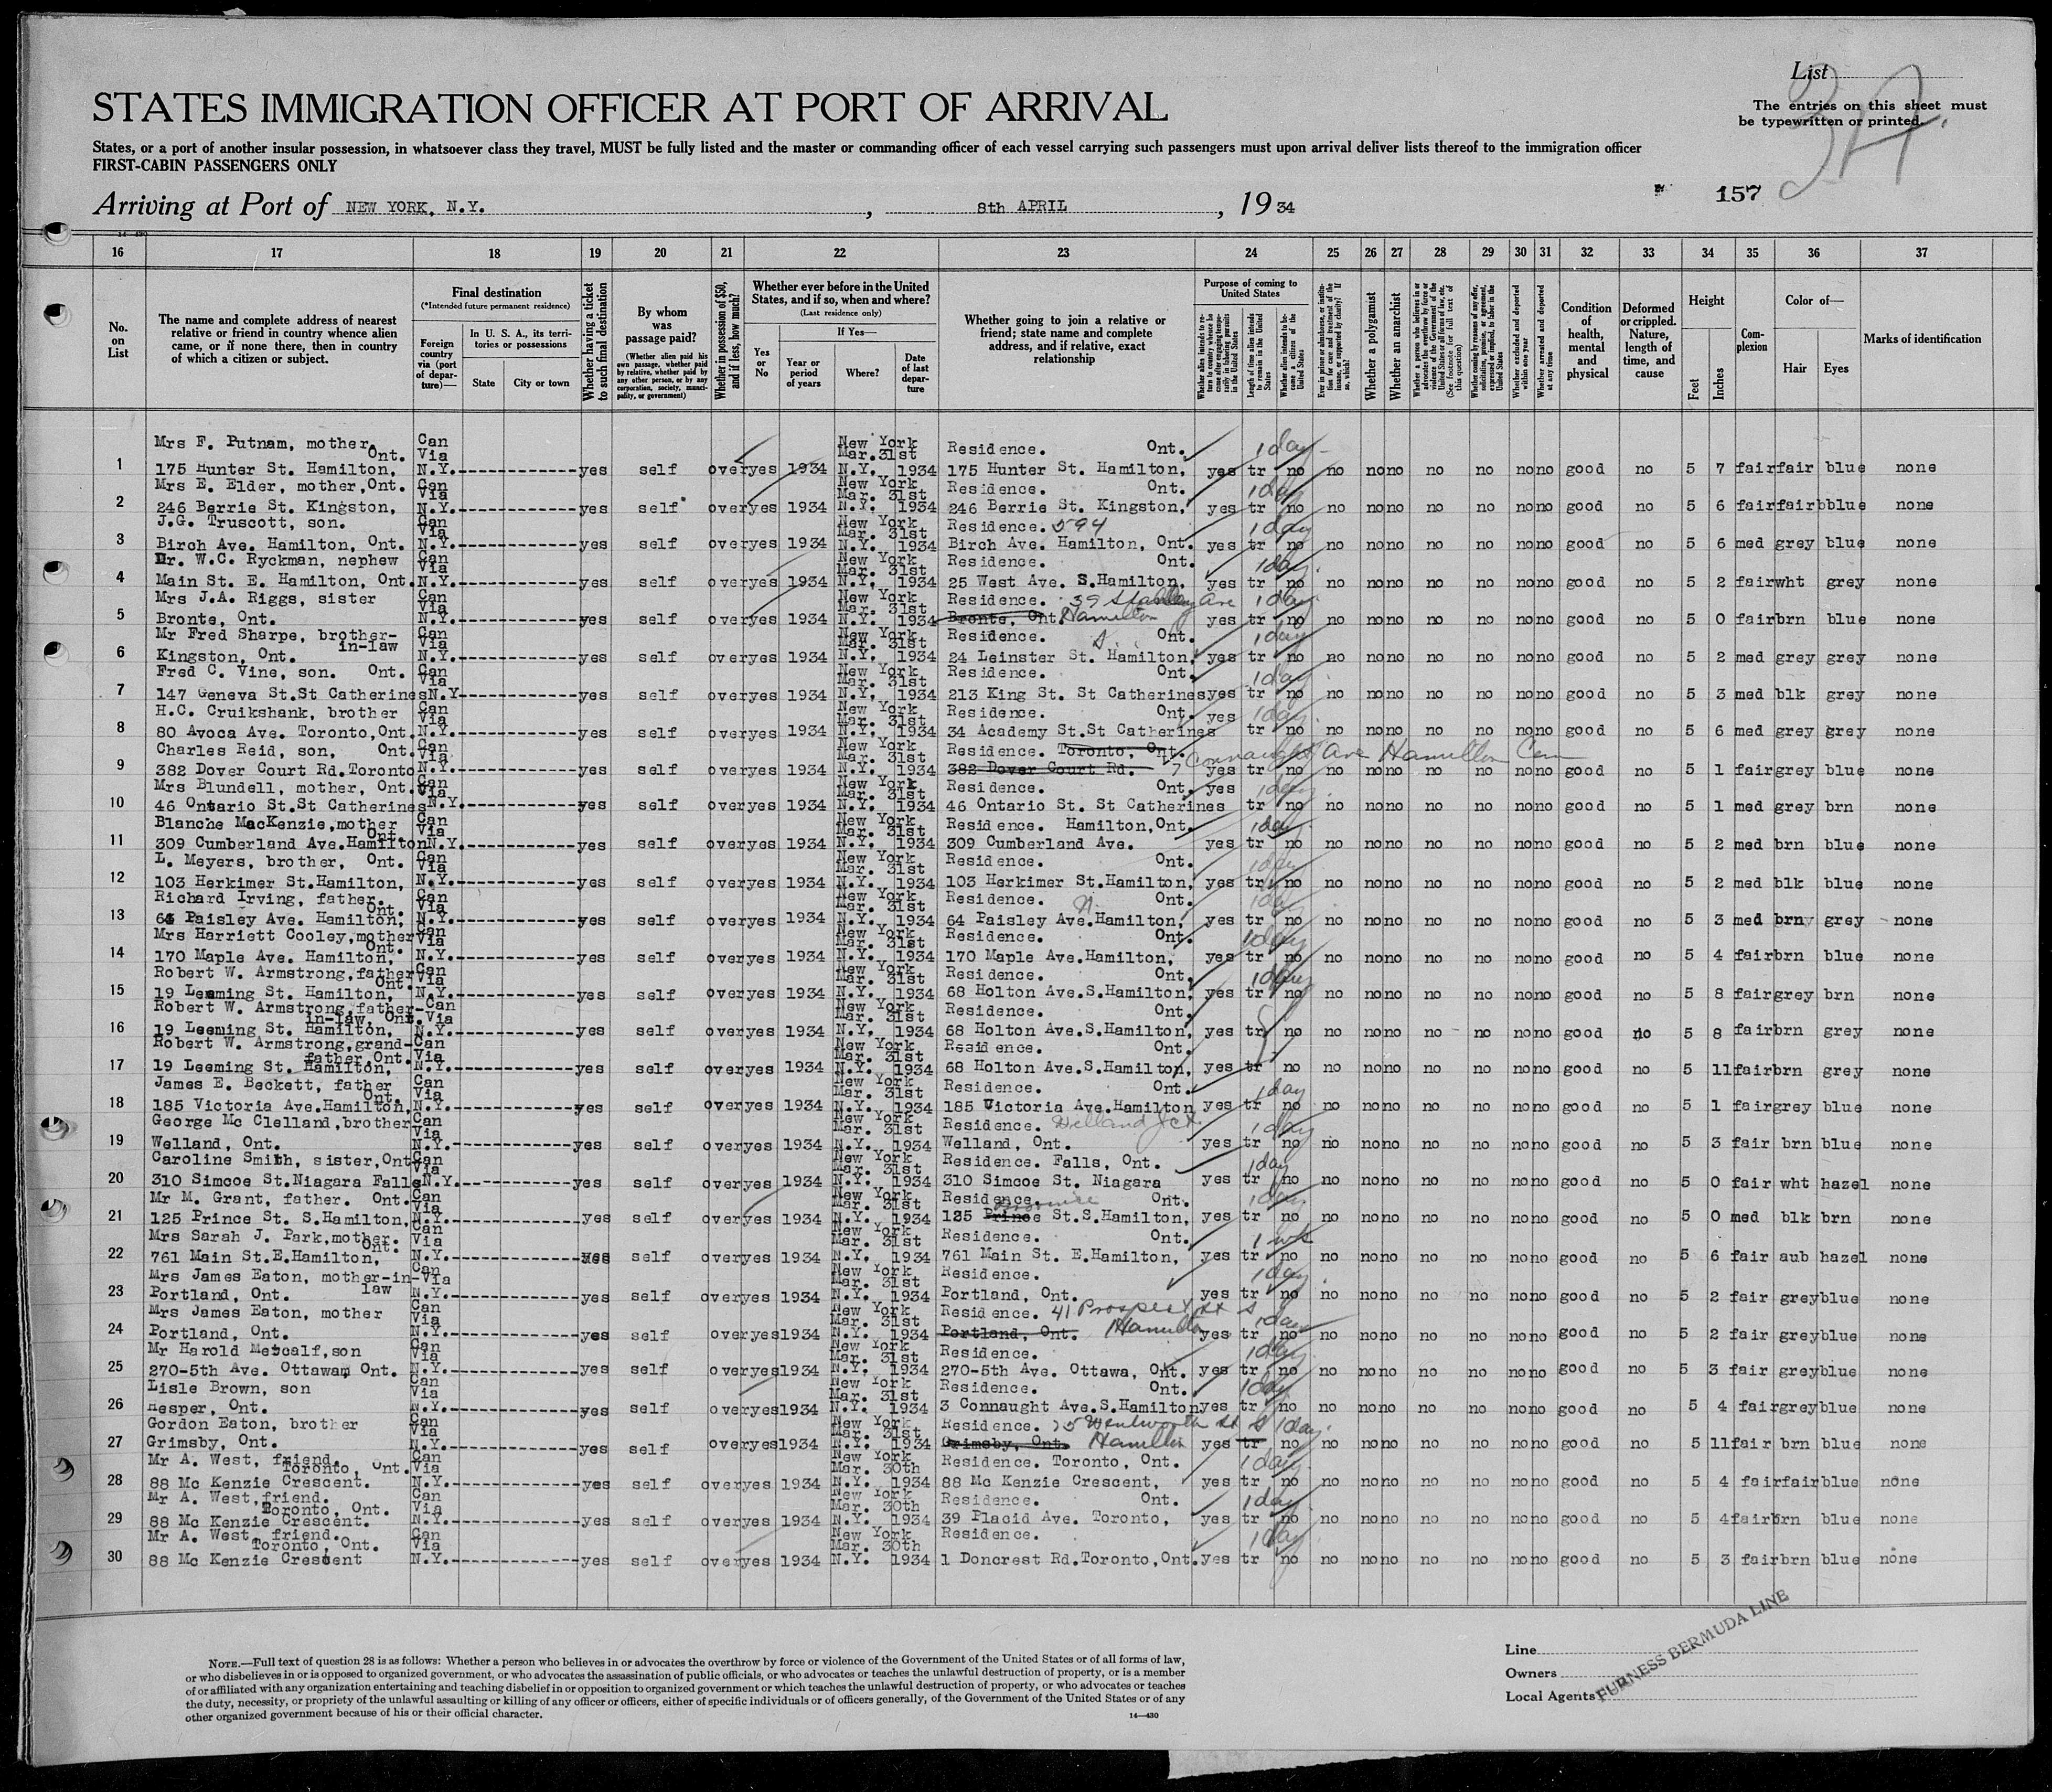 List
STATES IMMIGRATION OFFICER AT PORT OF ARRIVAL
The entries on this sheet must
be typewritten or printed.
States, or a port of another insular possession, in whatsoever class they travel, MUST be fully listed and the master or commanding officer of each vessel carrying such passengers must upon arrival deliver lists thereof to the immigration officer
FIRST-CABIN PASSENGERS ONLY
157
Arriving at Port of NEW YORK, N.Y. , 8th APRIL , 1934
16 17 18 19 20 21 22 23 24 25 26 27 28 29 30 31 32 33 34 35 36 37
No. on List
The name and complete address of nearest relative or friend in country whence alien came, or if none there, then in country of which a citizen or subject.
Final destination
(*Intended future permanent residence)
Foreign country via (port of departure)—
In U. S. A., its territories or possessions
State
City or town
Whether having a ticket to such final destination
By whom was passage paid?
(Whether alien paid his own passage, whether paid by relative, whether paid by any other person, or by any corporation, society, municipality, or government)
Whether in possession of $50, and if less, how much?
Whether ever before in the United States, and if so, when and where?
(Last residence only)
Yes or No
If Yes—
Year or period of years
Where?
Date of last departure
Whether going to join a relative or friend; state name and complete address, and if relative, exact relationship
Purpose of coming to United States
Whether alien intends to return to country whence he came after engaging temporarily in laboring pursuits in the United States
Length of time alien intends to remain in the United States
Whether alien intends to become a citizen of the United States
Ever in prison or almshouse, or institution for care and treatment of the insane, or supported by charity? If so, which?
Whether a polygamist
Whether an anarchist
Whether a person who believes in or advocates the overthrow by force or violence of the Government of the United States or all forms of law, etc. (See footnote for full text of this question)
Whether coming by reasons of any offer, solicitation, promise, or agreement, expressed or implied, to labor in the United States
Whether excluded and deported within one year
Whether arrested and deported at any time
Condition of health, mental and physical
Deformed or crippled. Nature, length of time, and cause
Height
Feet
Inches
Complexion
Color of—
Hair
Eyes
Marks of identification
Mrs F. Putnam, mother. Ont. Can Via New York Mar. 31st Residence. Ont. 1 day
1 175 Hunter St. Hamilton, N.Y. yes self over yes 1934 N.Y. 1934 175 Hunter St. Hamilton, yes tr no no no no no no no no good no 5 7 fair fair blue none
Mrs E. Elder, mother, Ont. Can Via New York Mar. 31st Residence. Ont. 1 day
2 246 Berrie St. Kingston, N.Y. yes self over yes 1934 N.Y. 1934 246 Berrie St. Kingston, yes tr no no no no no no no no good no 5 6 fair fair bblue none
J.G. Truscott, son. Can Via New York Mar. 31st Residence. 594 1 day
3 Birch Ave. Hamilton, Ont. N.Y. yes self over yes 1934 N.Y. 1934 Birch Ave. Hamilton, Ont. yes tr no no no no no no no no good no 5 6 med grey blue none
Dr. W.C. Ryckman, nephew Can Via New York Mar. 31st Residence. Ont. 1 day
4 Main St. E. Hamilton, Ont. N.Y. yes self over yes 1934 N.Y. 1934 25 West Ave. S.Hamilton, yes tr no no no no no no no no good no 5 2 fair wht grey none
Mrs J.A. Riggs, sister Can Via New York Mar. 31st Residence. 39 Stanley Ave 1 day
5 Bronte, Ont. N.Y. yes self over yes 1934 N.Y. 1934 Bronte, Ont. Hamilton yes tr no no no no no no no no good no 5 0 fair brn blue none
Mr Fred Sharpe, brother-in-law Can Via New York Mar. 31st Residence. S. Ont. 1 day
6 Kingston, Ont. N.Y. yes self over yes 1934 N.Y. 1934 24 Leinster St. Hamilton, yes tr no no no no no no no no good no 5 2 med grey grey none
Fred C. Vine, son. Ont. Can Via New York Mar. 31st Residence. Ont. 1 day
7 147 Geneva St.St Catherines N.Y. yes self over yes 1934 N.Y. 1934 213 King St. St Catherines yes tr no no no no no no no no good no 5 3 med blk grey none
H.C. Cruikshank, brother Can Via New York Mar. 31st Residence. Ont. yes 1 day
8 80 Avoca Ave. Toronto, Ont. N.Y. yes self over yes 1934 N.Y. 1934 34 Academy St.St Catherines tr no no no no no no no no good no 5 6 med grey grey none
Charles Reid, son, Ont. Can Via New York Mar. 31st Residence. Toronto, Ont. 7 Connaught Ave Hamilton Can
9 382 Dover Court Rd.Toronto N.Y. yes self over yes 1934 N.Y. 1934 382 Dover Court Rd. yes tr no no no no no no no no good no 5 1 fair grey blue none
Mrs Blundell, mother, Ont. Can Via New York Mar. 31st Residence. Ont. yes 1 day
10 46 Ontario St.St Catherines N.Y. yes self over yes 1934 N.Y. 1934 46 Ontario St. St Catherines tr no no no no no no no no good no 5 1 med grey brn none
Blanche MacKenzie, mother Ont. Can Via New York Mar. 31st Residence. Hamilton, Ont. 1 day
11 309 Cumberland Ave.Hamilton N.Y. yes self over yes 1934 N.Y. 1934 309 Cumberland Ave. yes tr no no no no no no no no good no 5 2 med brn blue none
L. Meyers, brother, Ont. Can Via New York Mar. 31st Residence. Ont. 1 day
12 103 Herkimer St.Hamilton, N.Y. yes self over yes 1934 N.Y. 1934 103 Herkimer St.Hamilton, yes tr no no no no no no no no good no 5 2 med blk blue none
Richard Irving, father. Ont. Can Via New York Mar. 31st Residence. Ont. 1 day
13 64 Paisley Ave. Hamilton, N.Y. yes self over yes 1934 N.Y. 1934 64 Paisley Ave.Hamilton, yes tr no no no no no no no no good no 5 3 med brn grey none
Mrs Harriett Cooley, mother Ont. Can Via New York Mar. 31st Residence. Ont. 1 day
14 170 Maple Ave. Hamilton, N.Y. yes self over yes 1934 N.Y. 1934 170 Maple Ave.Hamilton, yes tr no no no no no no no no good no 5 4 fair brn blue none
Robert W. Armstrong, father Ont. Can Via New York Mar. 31st Residence. Ont. 1 day
15 19 Leeming St. Hamilton, N.Y. yes self over yes 1934 N.Y. 1934 68 Holton Ave.S.Hamilton, yes tr no no no no no no no no good no 5 8 fair grey brn none
Robert W. Armstrong, father-in-law, Ont. Can Via New York Mar. 31st Residence. Ont.
16 19 Leeming St. Hamilton, N.Y. yes self over yes 1934 N.Y. 1934 68 Holton Ave.S.Hamilton, yes tr no no no no no no no no good no 5 8 fair brn grey none
Robert W. Armstrong, grand-father Ont. Can Via New York Mar. 31st Residence. Ont.
17 19 Leeming St. Hamilton, N.Y. yes self over yes 1934 N.Y. 1934 68 Holton Ave.S.Hamilton, yes tr no no no no no no no no good no 5 11 fair brn grey none
James E. Beckett, father Ont. Can Via New York Mar. 31st Residence. Ont. 1 day
18 185 Victoria Ave.Hamilton, N.Y. yes self over yes 1934 N.Y. 1934 185 Victoria Ave.Hamilton yes tr no no no no no no no no good no 5 1 fair grey blue none
George Mc Clelland, brother Can Via New York Mar. 31st Residence. Welland Jct. 1 day
19 Welland, Ont. N.Y. yes self over yes 1934 N.Y. 1934 Welland, Ont. yes tr no no no no no no no no good no 5 3 fair brn blue none
Caroline Smith, sister, Ont Can Via New York Mar. 31st Residence. Falls, Ont. 1 day
20 310 Simcoe St.Niagara Falls N.Y. yes self over yes 1934 N.Y. 1934 310 Simcoe St. Niagara yes tr no no no no no no no no good no 5 0 fair wht hazel none
Mr M. Grant, father. Ont. Can Via New York Mar. 31st Residence. Ont. 1 day
21 125 Prince St. S.Hamilton, N.Y. yes self over yes 1934 N.Y. 1934 125 Prince St.S.Hamilton, yes tr no no no no no no no no good no 5 0 med blk brn none
Mrs Sarah J. Park, mother. Ont. Can Via New York Mar. 31st Residence. Ont. 1 wk
22 761 Main St.E.Hamilton, N.Y. yes self over yes 1934 N.Y. 1934 761 Main St. E.Hamilton, yes tr no no no no no no no no good no 5 6 fair aub hazel none
Mrs James Eaton, mother-in-law Can Via New York Mar. 31st Residence. 1 day
23 Portland, Ont. N.Y. yes self over yes 1934 N.Y. 1934 Portland, Ont. yes tr no no no no no no no no good no 5 2 fair grey blue none
Mrs James Eaton, mother Can Via New York Mar. 31st Residence. 41 Prospect St S 1 day
24 Portland, Ont. N.Y. yes self over yes 1934 N.Y. 1934 Portland, Ont. Hamilton yes tr no no no no no no no no good no 5 2 fair grey blue none
Mr Harold Metcalf, son Can Via New York Mar. 31st Residence. 1 day
25 270-5th Ave. Ottawa, Ont. N.Y. yes self over yes 1934 N.Y. 1934 270-5th Ave. Ottawa, Ont. yes tr no no no no no no no no good no 5 3 fair grey blue none
Lisle Brown, son Can Via New York Mar. 31st Residence. Ont. 1 day
26 Hesper, Ont. N.Y. yes self over yes 1934 N.Y. 1934 3 Connaught Ave.S.Hamilton yes tr no no no no no no no no good no 5 4 fair grey blue none
Gordon Eaton, brother Can Via New York Mar. 31st Residence. Wentworth St S 1 day
27 Grimsby, Ont. N.Y. yes self over yes 1934 N.Y. 1934 Grimsby, Ont. Hamilton yes tr no no no no no no no no good no 5 11 fair brn blue none
Mr A. West, friend. Toronto, Ont. Can Via New York Mar. 30th Residence. Toronto, Ont. 1 day
28 88 Mc Kenzie Crescent. N.Y. yes self over yes 1934 N.Y. 1934 88 Mc Kenzie Crescent, yes tr no no no no no no no no good no 5 4 fair fair blue none
Mr A. West, friend. Toronto, Ont. Can Via New York Mar. 30th Residence. Ont. 1 day
29 88 Mc Kenzie Crescent. N.Y. yes self over yes 1934 N.Y. 1934 39 Placid Ave. Toronto, yes tr no no no no no no no no good no 5 4 fair brn blue none
Mr A. West, friend. Toronto, Ont. Can Via New York Mar. 30th Residence. 1 day
30 88 Mc Kenzie Crescent N.Y. yes self over yes 1934 N.Y. 1934 1 Doncrest Rd.Toronto, Ont. yes tr no no no no no no no no good no 5 3 fair brn blue none
NOTE.—Full text of question 28 is as follows: Whether a person who believes in or advocates the overthrow by force or violence of the Government of the United States or of all forms of law,
or who disbelieves in or is opposed to organized government, or who advocates the assassination of public officials, or who advocates or teaches the unlawful destruction of property, or is a member
of or affiliated with any organization entertaining and teaching disbelief in or opposition to organized government or which teaches the unlawful destruction of property, or who advocates or teaches
the duty, necessity, or propriety of the unlawful assaulting or killing of any officer or officers, either of specific individuals or of officers generally, of the Government of the United States or of any
other organized government because of his or their official character.
14—430
Line
Owners
Local Agents
FURNESS BERMUDA LINE